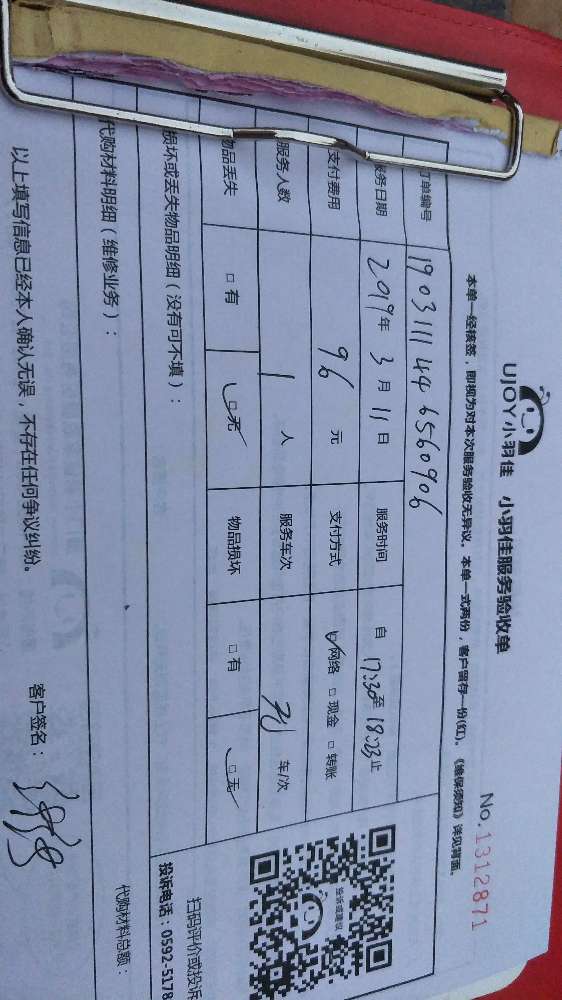 UJOY小羽佳 小羽佳服务验收单 No.1312871
本单一经核签，即视为对本次服务验收无异议。本单一式两份，客户留存一份(红)。《维保须知》详见背面。
订单编号 19031114436560906
服务日期 2019年3月11日 服务时间 自17:30至18:23止
支付费用 96元 支付方式 ☑网络 □现金 □转账
服务人数 1人 服务车次 车/次
物品丢失 □有 ☑无 物品损坏 □有 ☑无
损坏或丢失物品明细（没有可不填）：
投诉或建议
扫码评价或投诉
投诉电话：0592-5178
代购材料明细（维修业务）：
代购材料总额：
以上填写信息已经本人确认无误，不存在任何争议纠纷。 客户签名：